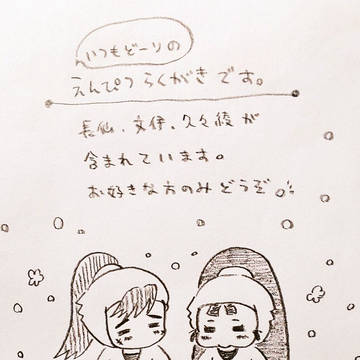 いつもどーりの
えんぴつらくがきです。
長仙、文伊、久々綾が
含まれています。
お好きな方のみどうぞ